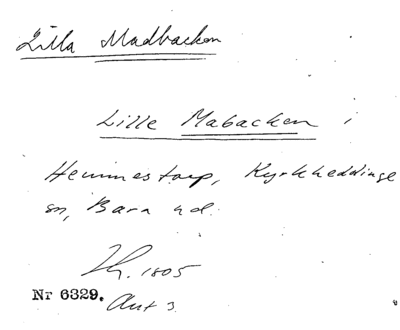 Lilla Madbacken
Lille Mabacken i
Hemmestorp, Kyrkheddinge
sn, Bara hd.
Lh. 1805
Nr 6329. Akt 3